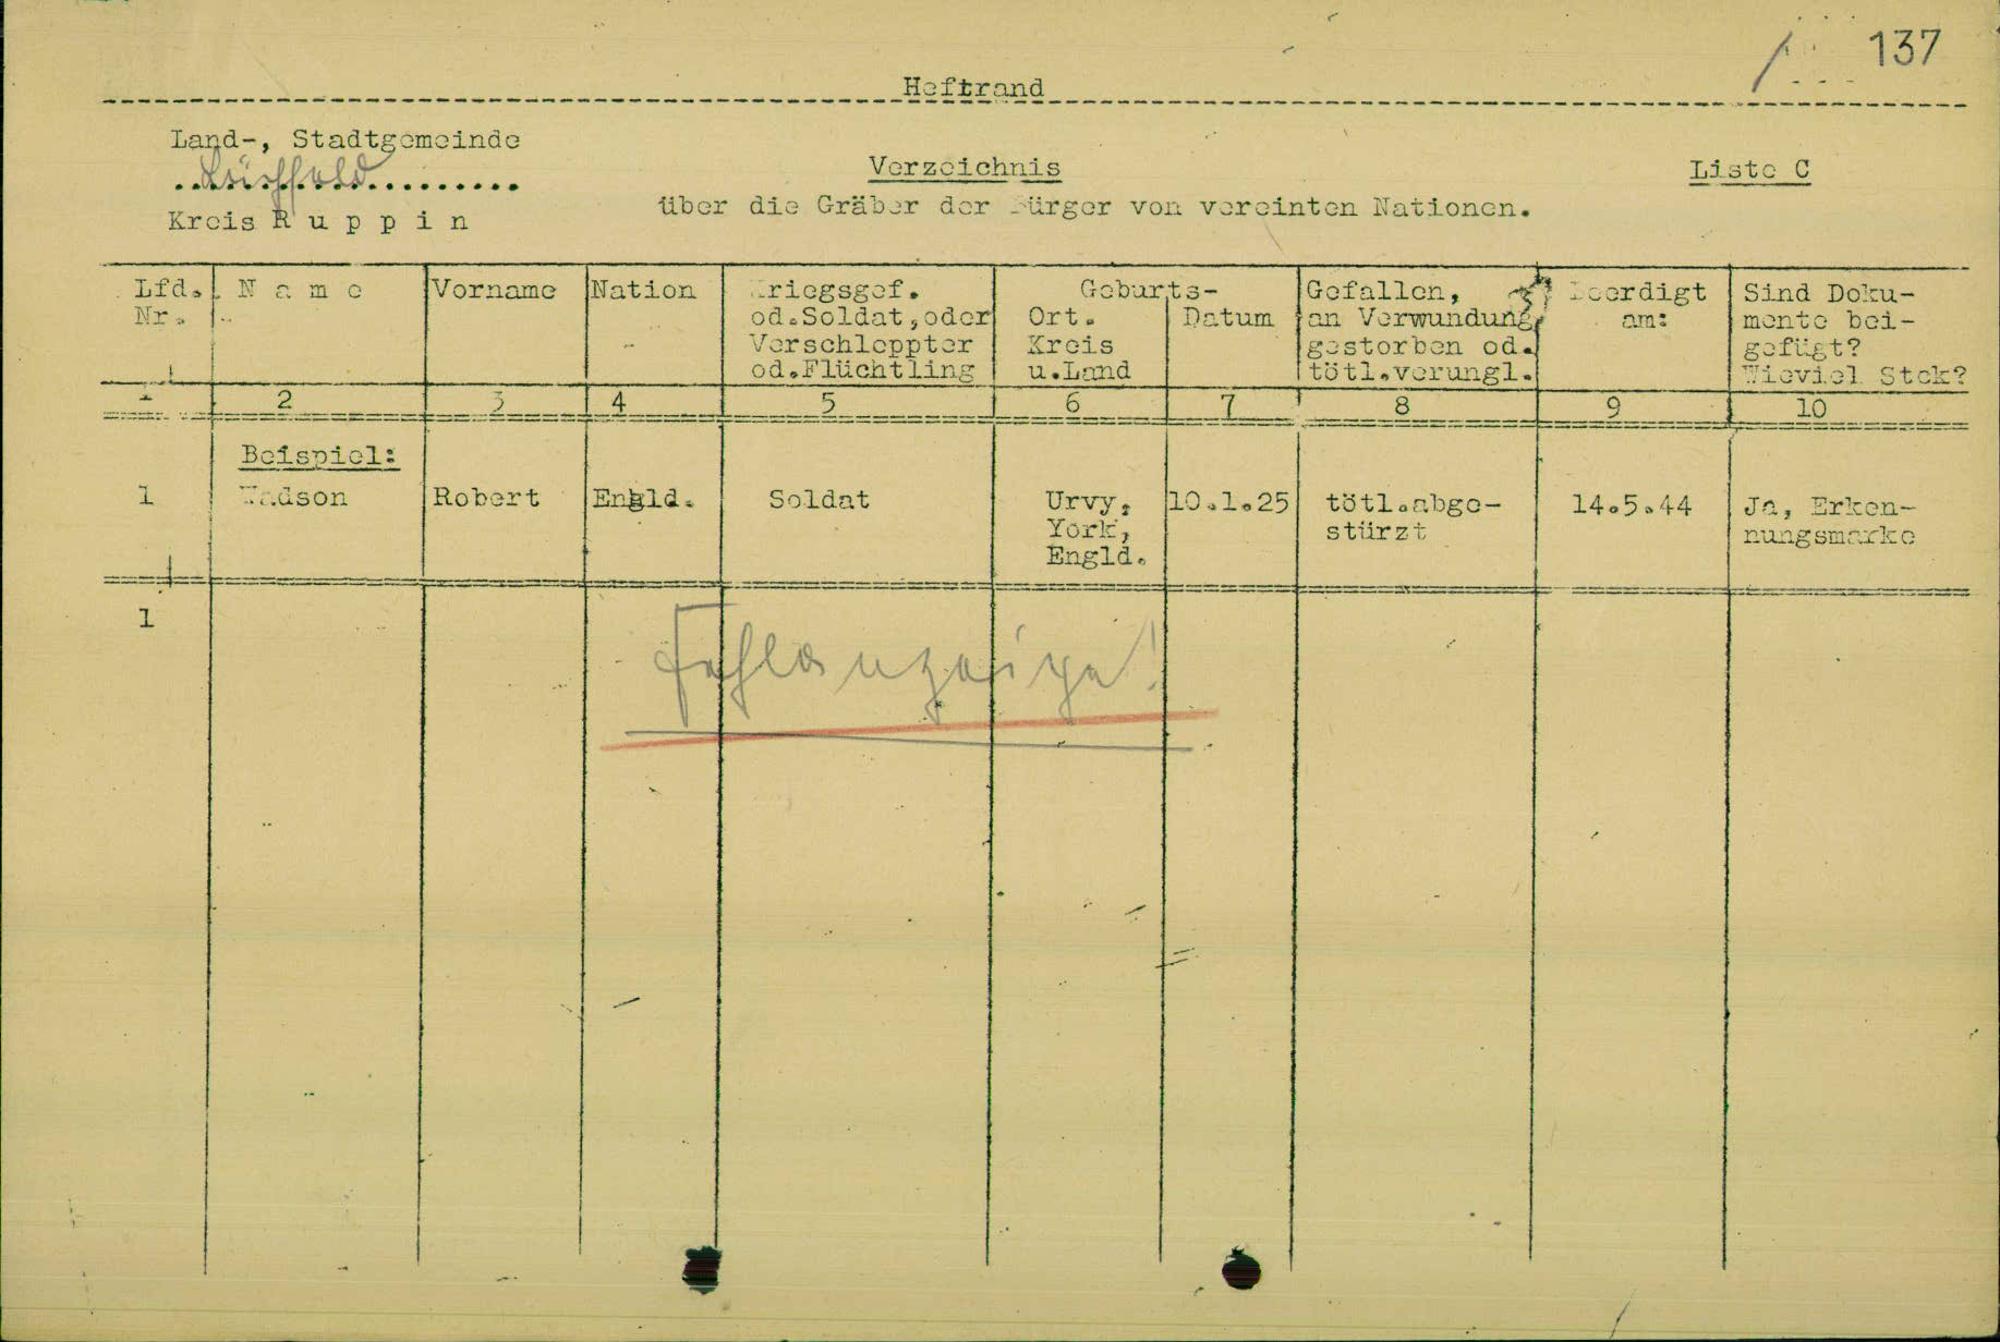 137
Heftrand
Land-, Stadtgemeinde
Kreis Ruppin
Verzeichnis
über die Gräber der Bürger von vereinten Nationen.
Liste C
Lfd. Nr.
Name
Vorname
Nation
Kriegsgef.
od.Soldat,oder
Verschleppter
od.Flüchtling
Geburts-
Ort.
Kreis
u.Land
Datum
Gefallen,
an Verwundung
gestorben od.
tötl.verungl.
Beerdigt
am:
Sind Doku-
mente bei-
gefügt?
Wieviel Stck?
1 2 3 4 5 6 7 8 9 10
Beispiel:
1 Wadson Robert Engld. Soldat Urvy, 10.1.25 tötl.abge- 14.5.44 Ja, Erken-
York, stürzt nungsmarke
Engld.
1
Fehlanzeige!